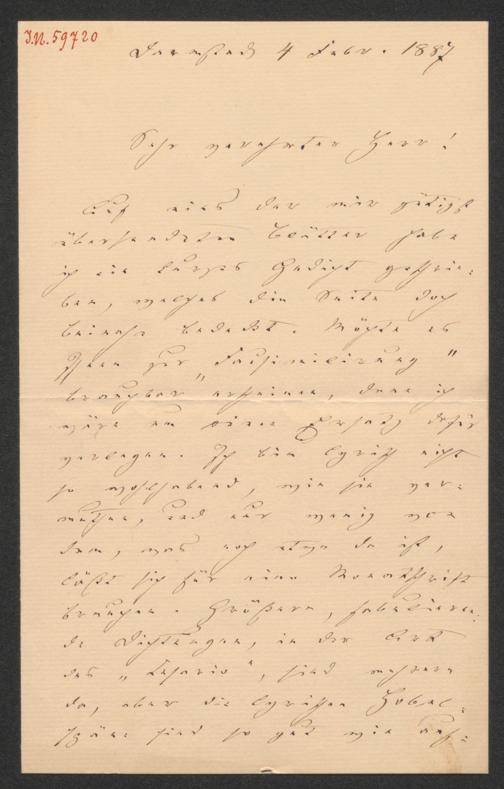 J.N. 59720
Darmstadt 4 Febr. 1887
Sehr verehrter Herr!
Auf eines der mir gütigst
übersendeten Blätter habe
ich ein kurzes Gedicht geschrie-
ben, welches die Seite doch
beinahe bedeckt. Möchte es
Ihnen zur „Facsimilirung"
brauchbar erscheinen, denn ich
wäre um einen Ersatz dafür
verlegen. Ich bin lyrisch nicht
so wohlhabend, wie sie ver-
muthen, und nur wenig von
dem, was noch etwa da ist,
läßt sich für eine Monatschrift
brauchen. Größere, fabulieren-
de Dichtungen, in der Art
des „", sind mehrere
da, aber die lyrischen Hobel-
späne sind so gut wie auf-